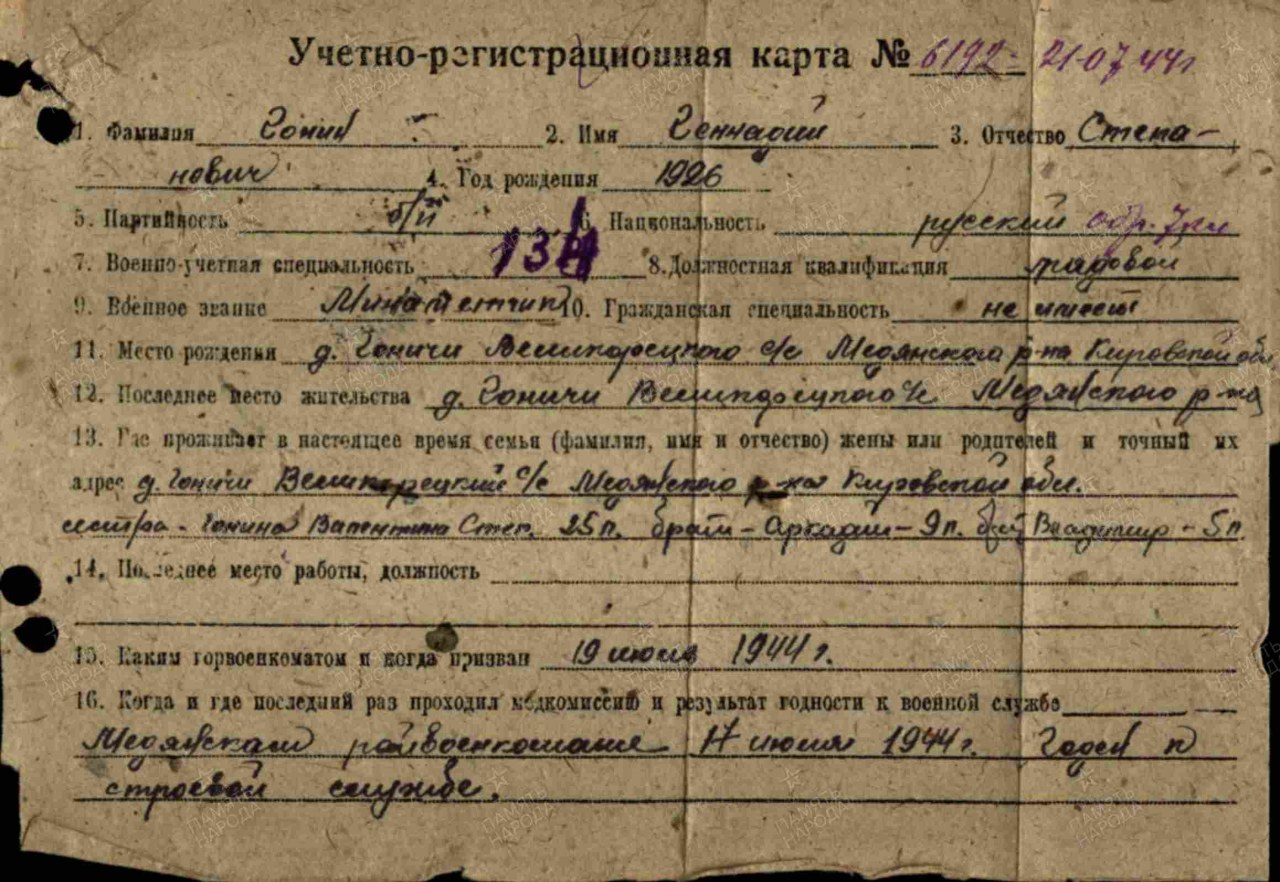 Учетно-регистрационная карта № 6192 21.07.44г
1. Фамилия Гонин 2. Имя Геннадий 3. Отчество Степа-
нович 4. Год рождения 1926
5. Партийность б/п 6. Национальность русский обр. 7 кл
7. Военно-учетная специальность 134 8. Должностная квалификация рядовой
9. Военное звание Минометчик 10. Гражданская специальность не имеет
11. Место рождения д. Гоничи Великорецкого с/с Медянского р-на Кировской обл
12. Последнее место жительства д. Гоничи Великорецкого с/с Медянского р-на
13. Где проживает в настоящее время семья (фамилия, имя и отчество) жены или родителей и точный их
адрес д. Гоничи Великорецкий с/с Медянского р-на Кировской обл.
сестра - Гонина Валентина Степ. 25 л. брат - Аркадий - 9 л. Владимир - 5 л.
14. Последнее место работы, должность
15. Каким горвоенкоматом и когда призван 19 1944 г.
16. Когда и где последний раз проходил медкомиссию и результат годности к военной службе
Медянском райвоенкомате 17 1944 г. Годен к
строевой службе.